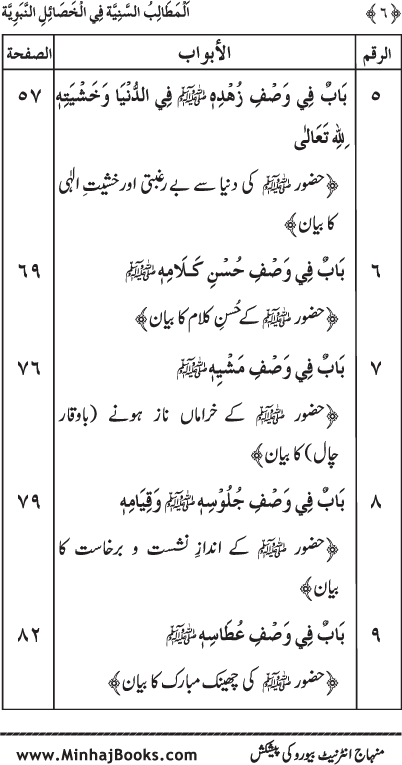 ﴿٦﴾ اَلْمَطَالِبُ السَّنِيَّة فِي الْخَصَائِلِ النَّبَوِيَّة
الرقم الأبواب الصفحة
٥ بَابٌ فِي وَصْفِ زُهْدِهٖ ﷺ فِي الدُّنْيَا وَخَشْيَتِهٖ ٥٧
لِلّٰهِ تَعَالٰى
﴿حضور ﷺ کی دنیا سے بے رغبتی اور خشیتِ الٰہی
کا بیان﴾
٦ بَابٌ فِي وَصْفِ حُسْنِ كَلَامِهٖ ﷺ ٦٩
﴿حضور ﷺ کے حُسنِ کلام کا بیان﴾
٧ بَابٌ فِي وَصْفِ مَشْيِهٖ ﷺ ٧٦
﴿حضور ﷺ کے خراماں ناز ہونے (باوقار
چال) کا بیان﴾
٨ بَابٌ فِي وَصْفِ جُلُوْسِهٖ ﷺ وَقِيَامِهٖ ٧٩
﴿حضور ﷺ کے اندازِ نشست و برخاست کا
بیان﴾
٩ بَابٌ فِي وَصْفِ عُطَاسِهٖ ﷺ ٨٢
﴿حضور ﷺ کی چھینک مبارک کا بیان﴾
منہاج انٹرنیٹ بیورو کی پیشکش www.MinhajBooks.com